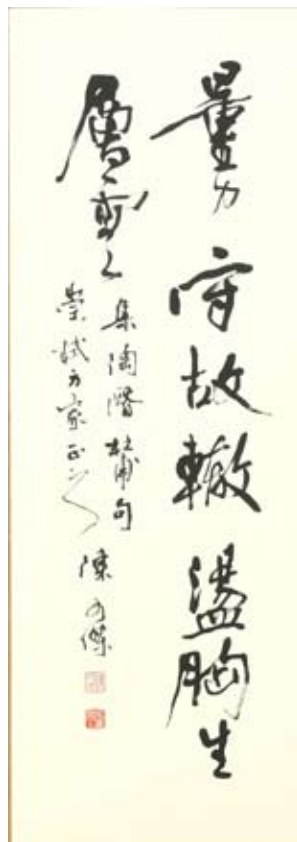 量力守故轍盪胸生
層雲
集陶潛杜甫句
軾方家正之
陳 傑